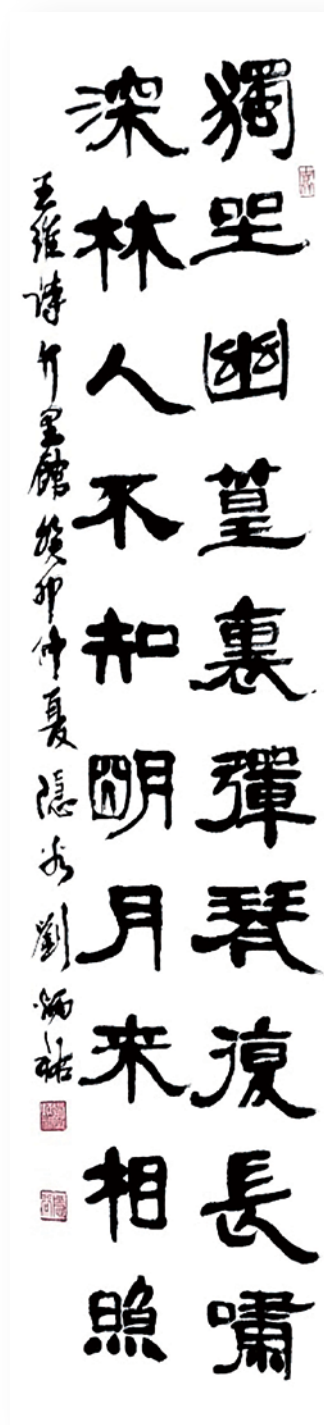 獨坐幽篁裏彈琴復長嘯
深林人不知明月来相照
王維詩竹里館癸卯仲夏隱谷劉炳祐